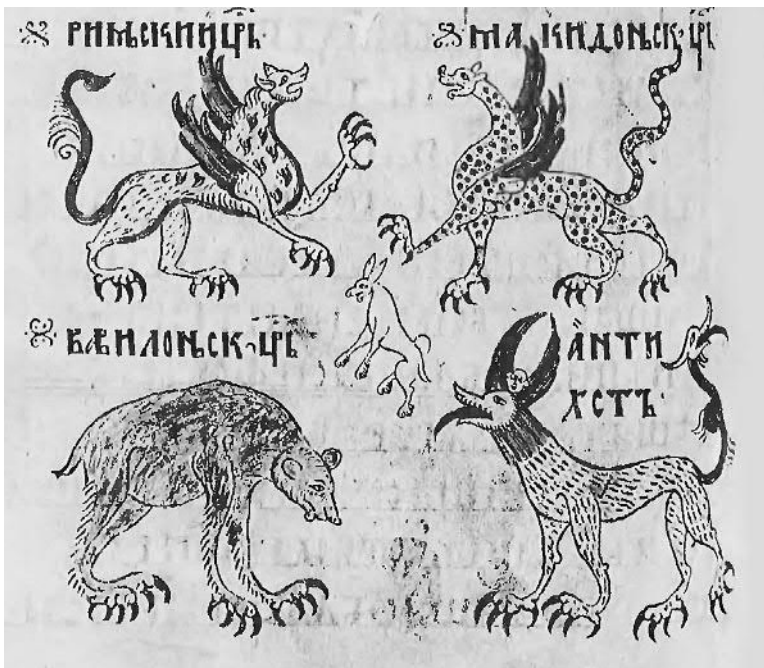 РИМЬСКИИ ЦР҃Ь
МАКИДОНЬСК ЦР҃Ь
ВАВИЛОНЬСК ЦР҃Ь
А҆НТИ
Х҃СТЪ·